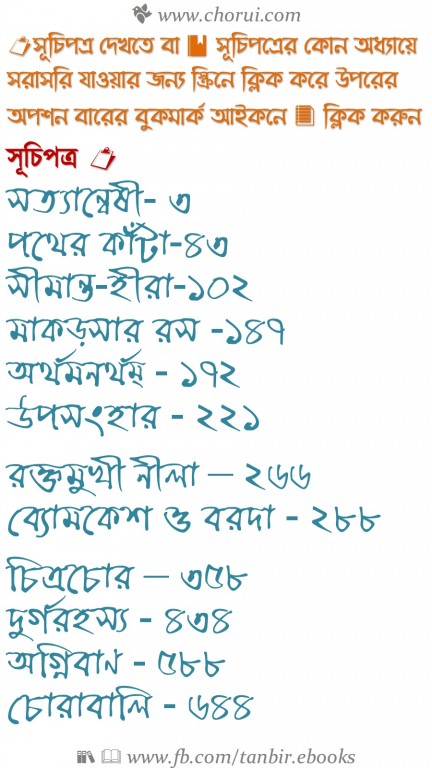 www.chorui.com
সূচিপত্র দেখতে বা সূচিপত্রের কোন অধ্যায়ে
সরাসরি যাওয়ার জন্য স্ক্রিনে ক্লিক করে উপরের
অপশন বারের বুকমার্ক আইকনে ক্লিক করুন
সূচিপত্র
সত্যান্বেষী- ৩
পথের কাঁটা-৪৩
সীমান্ত-হীরা-১০২
মাকড়সার রস -১৪৭
অর্থমনর্থম্ - ১৭২
উপসংহার - ২২১
রক্তমুখী নীলা – ২৬৬
ব্যোমকেশ ও বরদা - ২৮৮
চিত্রচোর – ৩৫৮
দুর্গরহস্য - ৪৩৪
অগ্নিবাণ - ৫৮৮
চোরাবালি - ৬৪৪
www.fb.com/tanbir.ebooks